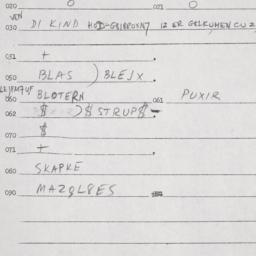 020 0 021 0
VEN
030 DI KIND HOD-GIBIPOXNT IZ ER GELKUMEN CU Z
051 +
050 BLAS ) BLEJX
060 BLOTERN 061 PUXIR
062 $ ) $ STRUP$
070 $
071 +
080 SKAPKE
090 MAZOL8ES